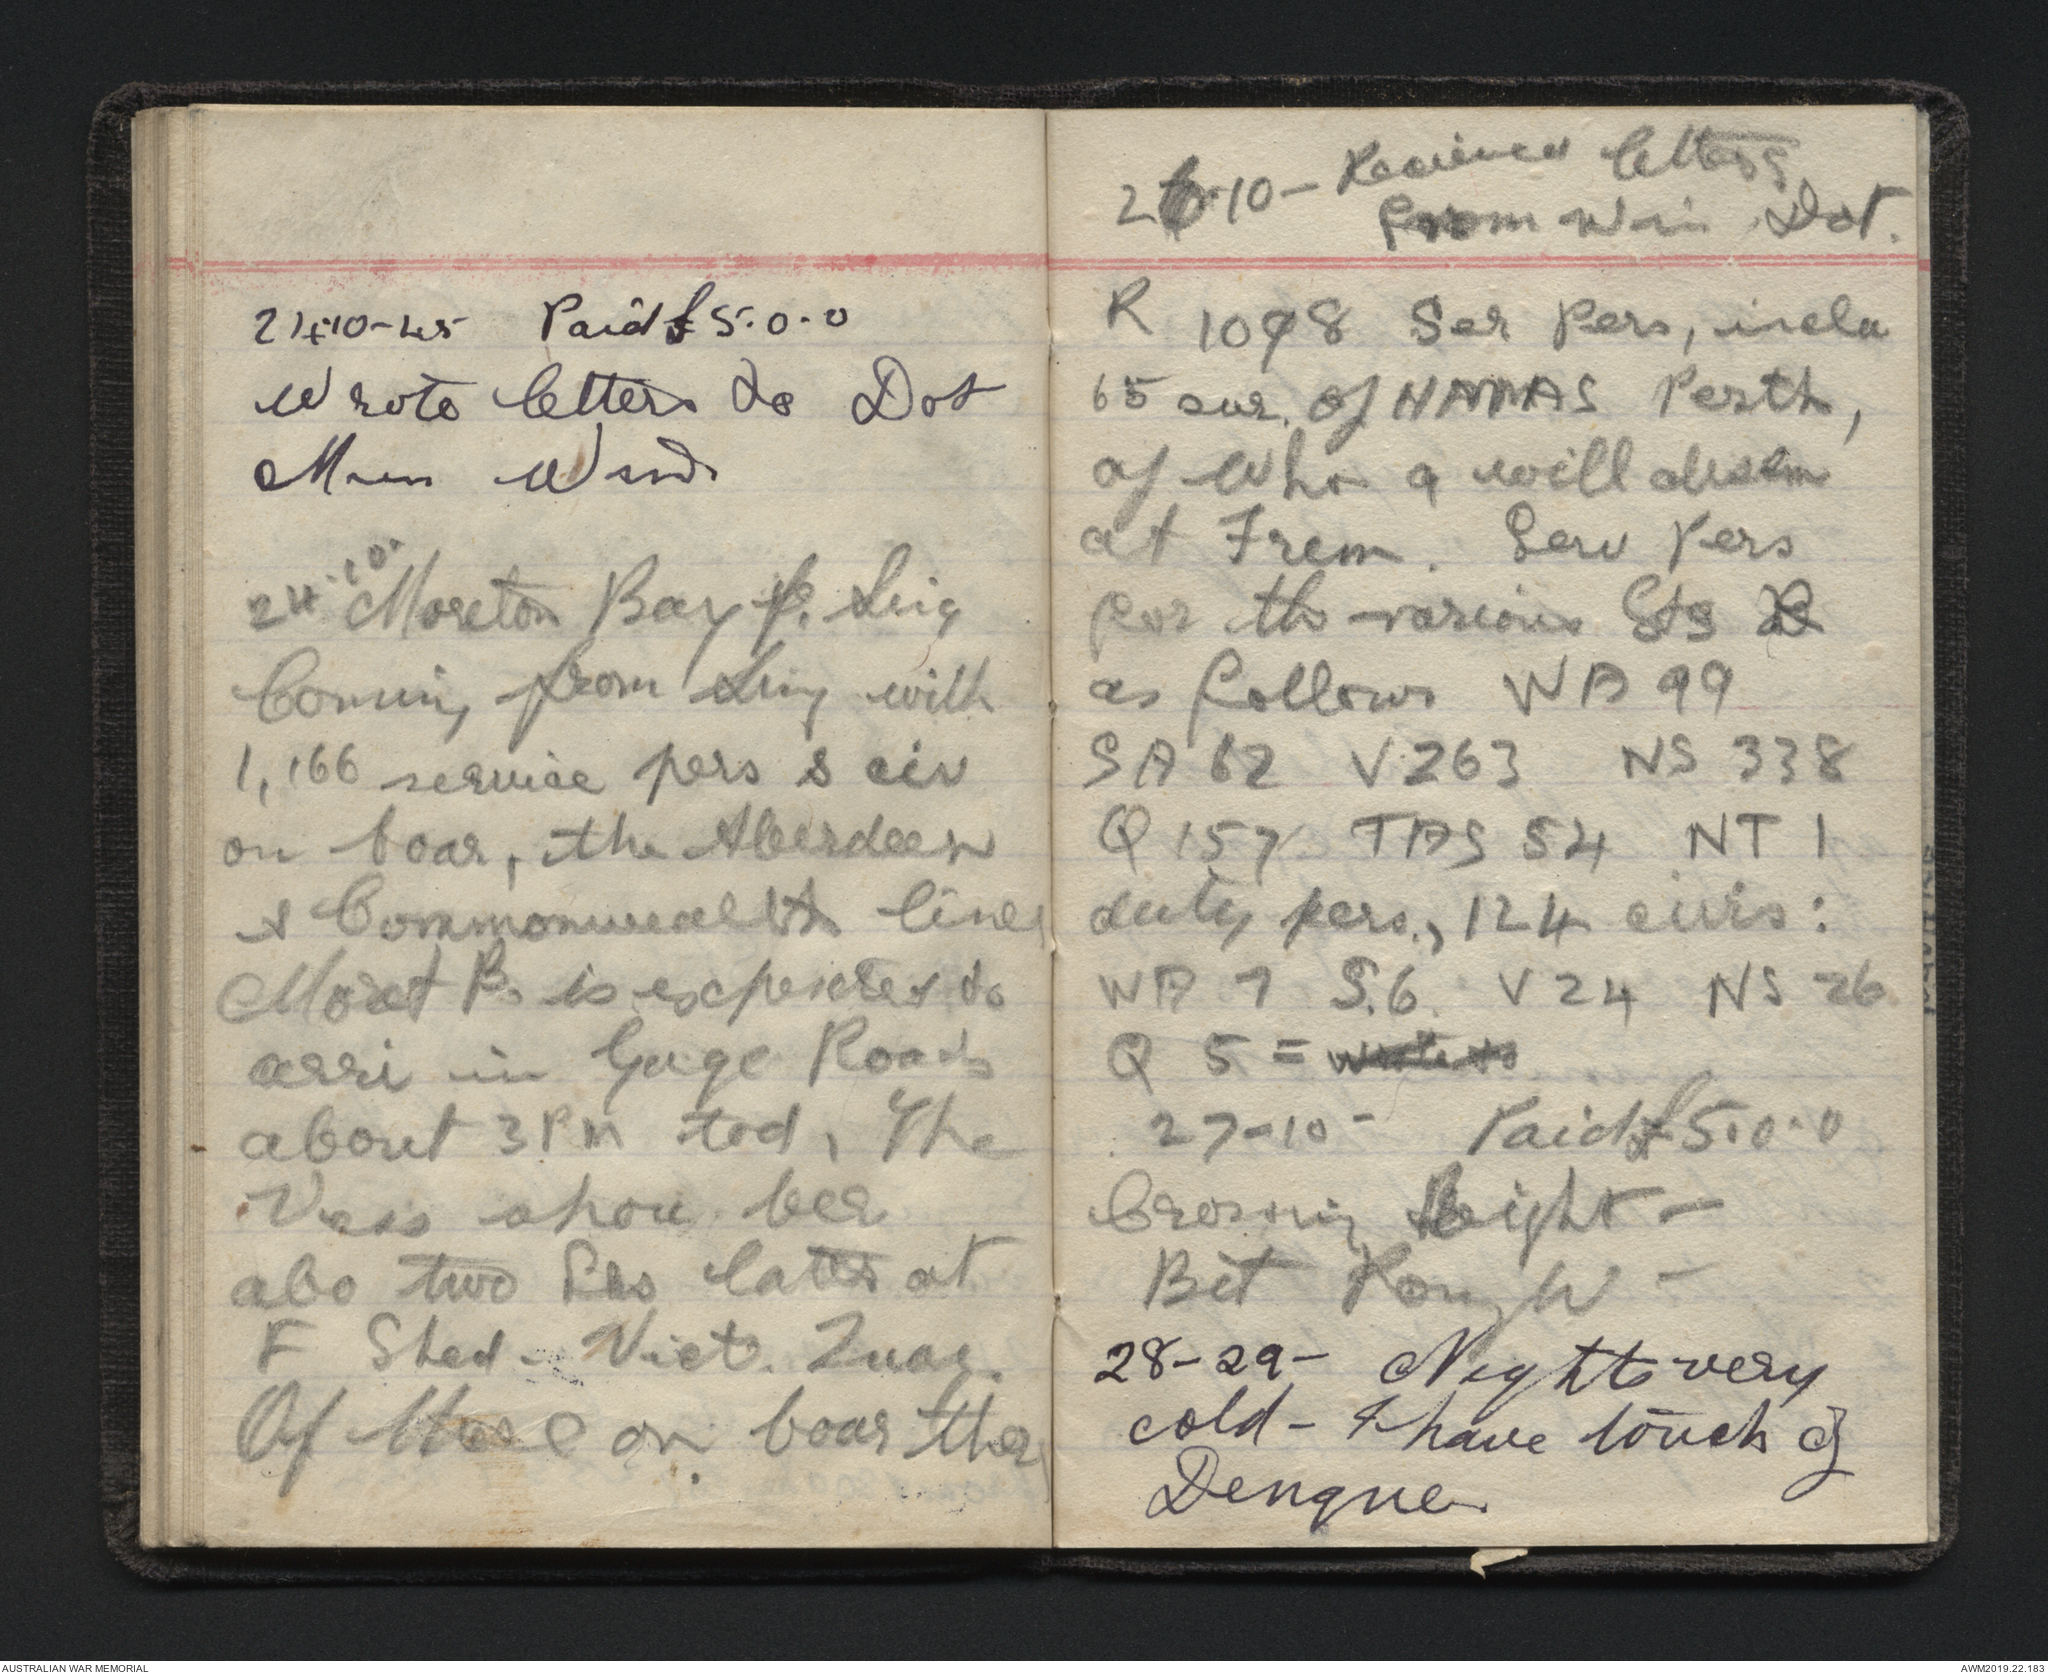 24-10-45 Paid £5.0.0
Wrote letters to Dot
Mum Win
24.10. Moreton Bay f. Sing
Coming from Sing with
1,166 service pers & civ
on boar, the Aberdeen
& Commonwealth line
Moret B. is expected to
arri in Gage Roads
about 3 PM tod, The
Vess shou ber
abo two later at
F Shed - Vict. Quay.
Of these on boar ther
26-10- Received letters
from Win Dot.
R 1098 Ser Pers, inclu
65 sur. of HAMAS Perth,
of who 9 will disem
at Frem. Serv Pers
for the various Sts
as follows WA 99
SA 62 V 263 NS 338
Q 157 TAS 54 NT 1
duty pers., 124 civis:
WA 7 S.6. V 24 NS 26
Q 5 =
27-10- Paid £5.0.0
Crossing Bight -
Bit Rough -
28-29- Nights very
cold - I have touch of
Dengue.
AUSTRALIAN WAR MEMORIAL
AWM2019.22.183